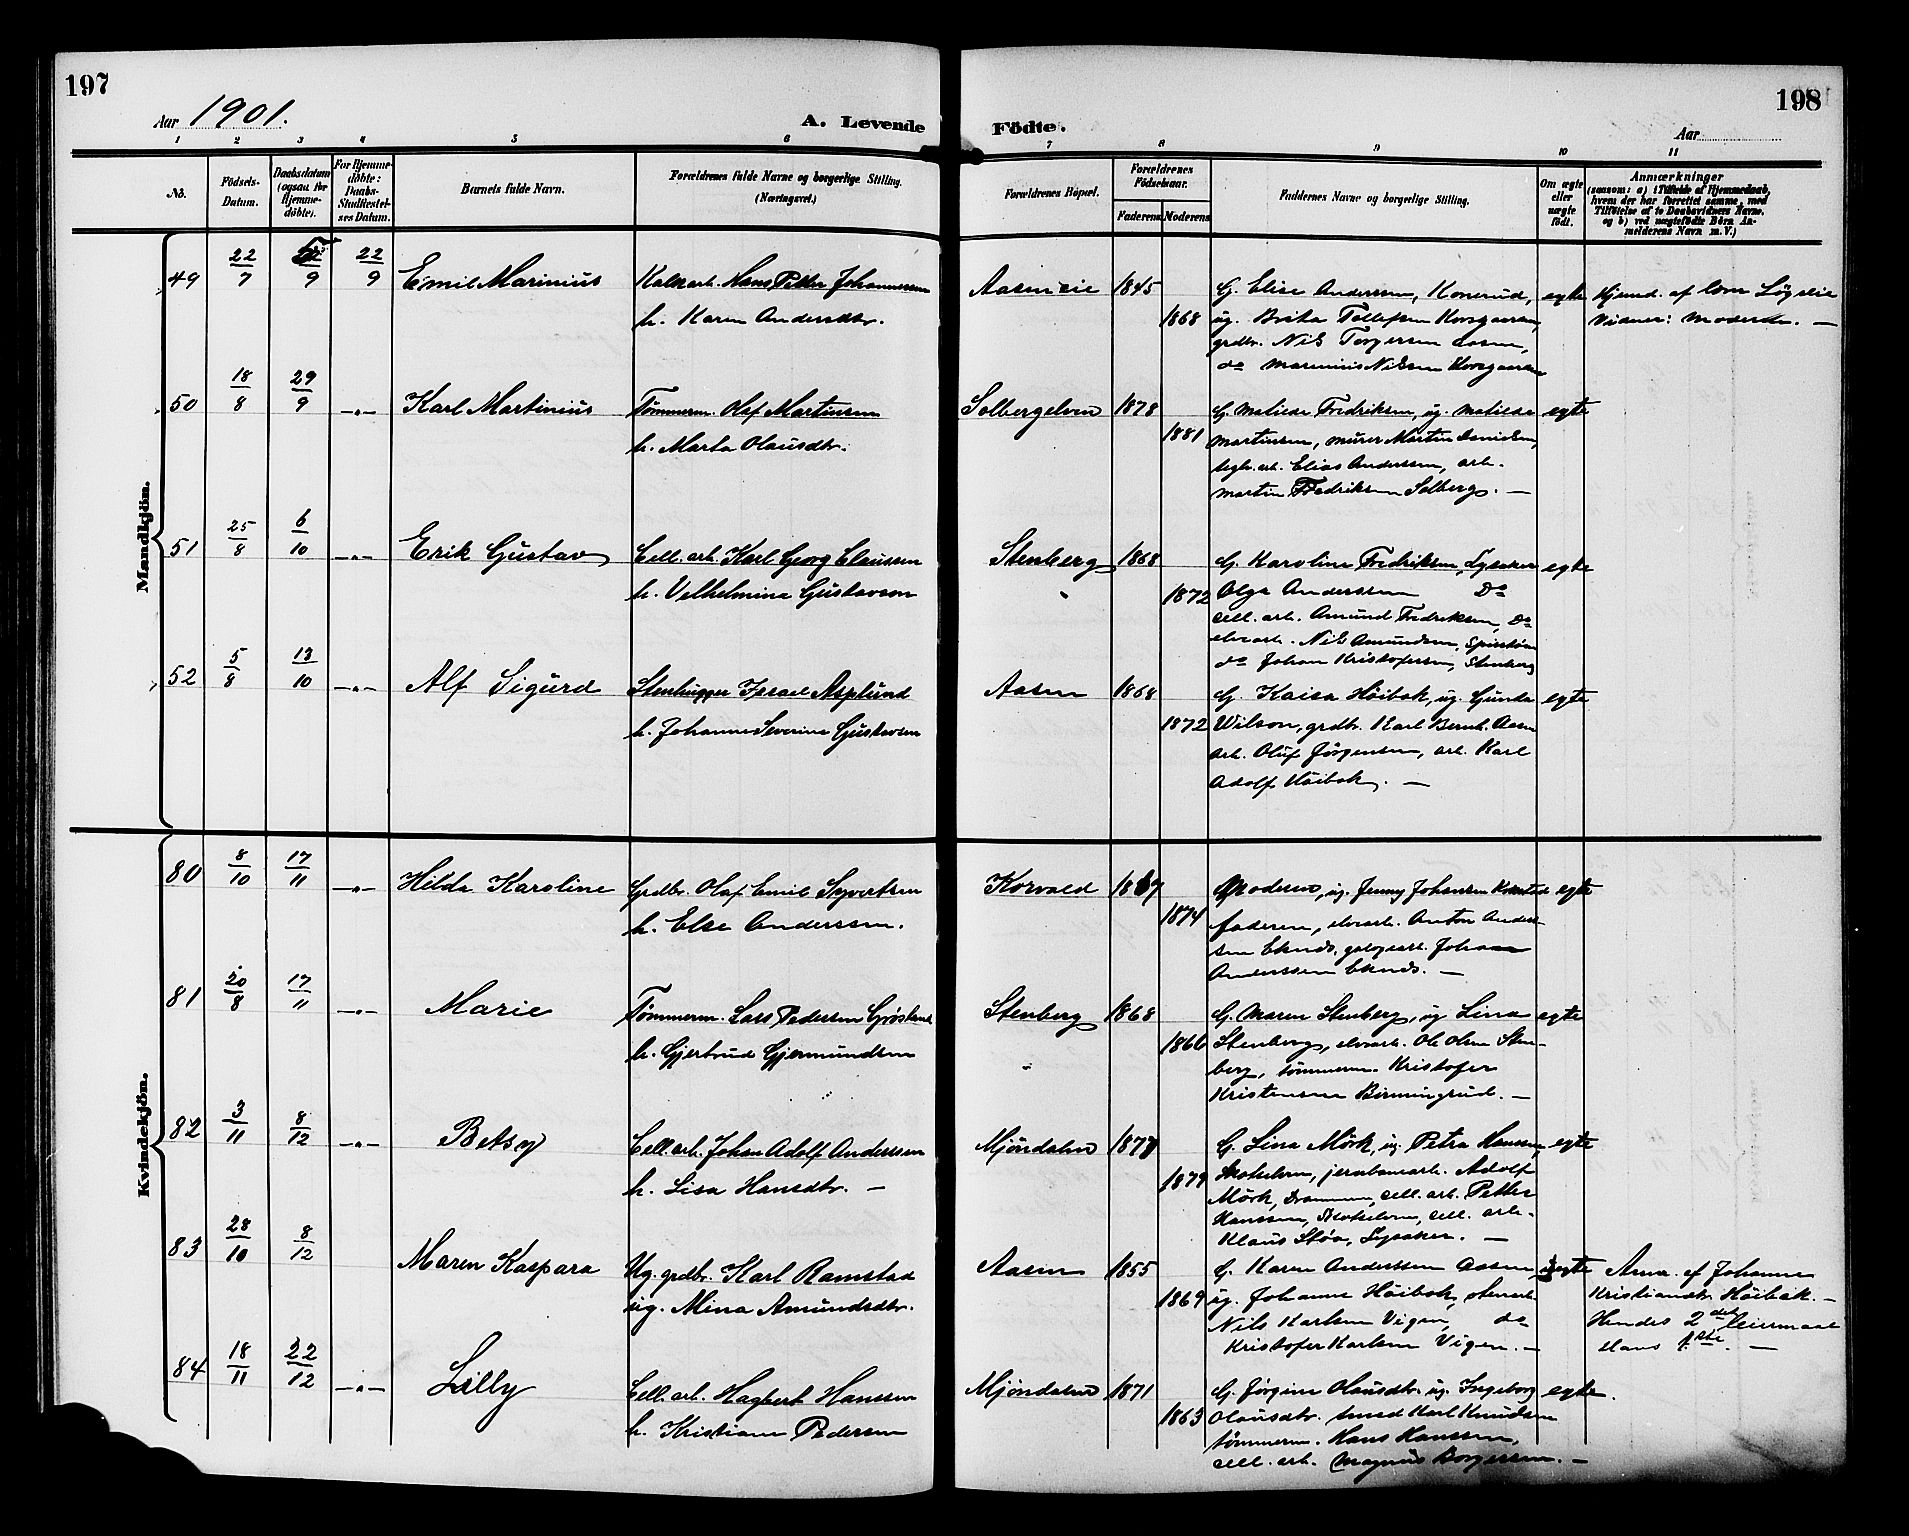 197
198
Aar 1901.
A. Levende
Födte.
Aar
1 2 3 4 5 6 7 8 9 10 11
No.
Födsels-Datum.
Daabsdatum (ogsaa for Hjemme-döbte).
For Hjemme-döbte: Daabs-Stadfæstel-ses Datum.
Barnets fulde Navn.
Forældrenes fulde Navne og borgerlige Stilling.
(Næringsvei.)
Forældrenes Bopæl.
Forældrenes Födselsaar.
Faderens Moderens
Faddernes Navne og borgerlige Stilling.
Om ægte eller uægte födt.
Anmærkninger
(saasom: a) i Tilfælde af Hjemmedaab, hvem der har forrettet samme, med Tilföielse af to Daabsvidners Navne, og b) ved uægtefödte Börn An-melderens Navn m. V.)
Mandkjön.
49 22/7 5/9 22/9 Emil Marinius
Kalkarb. Hans Petter Johannessen
h. Karen Andersdtr.
Aasen eie 1845
1868
G. Elise Anderssen, Konerud,
ug. Brita Tollefsen Korsgaarden,
grdbr. Nils Torgersen Aasen,
do Marenius Nilsen Korsgaarden
egte
Hjemd. af Com Løgslie
Vidner: Moderen. —
50 18/8 29/9 -"- Karl Martinius
Tømmerm. Olaf Martinsen
h. Marta Olausdtr.
Solbergelven 1878
1881
G. Matilde Fredriksen, ug. Matilde
Martinsen, murer Martin Danielsen,
teglv. arb. Elias Anderssen, arb.
Martin Fredriksen Solberg. —
egte
51 25/8 6/10 -"- Erik Gustav
Cell. arb. Karl Georg Claussen
h. Velhelmina Gustavson
Stenberg 1868
1872
G. Karoline Fredriksen, Lysaker
Olga Anderssen Do
cell. arb. Amund Fredriksen, Do
elvearb. Nils Amundsen,
do Johan Kristofersen, Stenberg
egte
52 5/8 13/10 -"- Alf Sigurd
Stenhugger Israel Asplund
h. Johanne Severine Gustavsen
Aasen 1868
1872
G. Kaisa Høibak, ug. Gunda
Wilson, grdbr. Karl Bernh. Aasen
arb. Oluf Jørgensen, arb. Karl
Adolf Høibak. —
egte
Kvindekjön.
80 8/10 17/11 -"- Hilda Karoline
Grdbr. Olaf Emil Syvertsen
h. Else Anderssen.
Korvald 1867
1874
Moderen, ug. Jenny Johansen
faderen, elvearb. Anton Anders-
sen Eknes, Johan
Anderssen Eknes. —
egte
81 20/8 17/11 -"- Marie
Tømmerm. Lars Pedersen
h. Gjertrud Gjermundsen
Stenberg 1868
1866
G. Maren Stenberg, ug Lina
Stenberg, elvearb. Ole Olsen Sten-
berg, tømmerm. Kristofer
Kristensen Birmingrud. —
egte
82 3/11 8/12 -"- Betsy
Cell. arb. Johan Adolf Anderssen
h. Lisa Hansdtr. —
Mjøndalen 1877
1879
G. Lina Mörk, ug. Petra Hanssen,
Krokelven, jernbanearb. Adolf
Mörk, Drammen, cell. arb. Petter
Hanssen, Krokelven, cell. arb.
Klaus Støa, Lysaker. —
egte
83 28/10 8/12 Maren Kaspara
Ug. grdbr. Karl Ramstad
ug. Mina Amundsdtr.
Aasen 1855
1869
G. Karen Anderssen Aasen,
ug. Johanne Høibak, stenarb.
Nils Karlsen Vigen, do
Kristofer Karlsen Vigen. —
uegte
Anm. af Johanne
Kristiansdtr. Høibak. —
Hendes 2det Leiermaal
Hans 1ste. —
84 18/11 22/12 -"- Lilly
Cell. arb. Hagbert Hanssen
h. Kristiane Pedersen
Mjøndalen 1871
1863
G. Jørgine Olausdtr. ug. Ingeborg
Olausdtr. smed Karl Knudsen
tømmerm. Hans Hanssen,
cell. arb. Magnus Borgersen. —
egte.